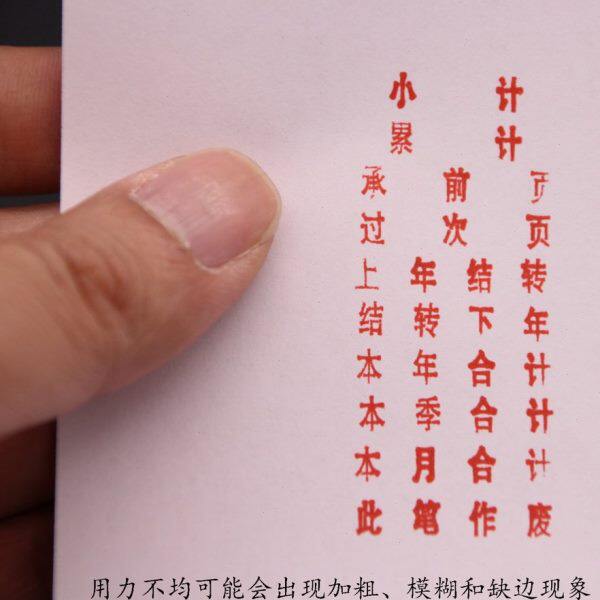 小计
累计
承前页
过次页
上年结转
结转下年
本年合计
本季合计
本月合计
此笔作废
用力不均可能会出现加粗、模糊和缺边现象